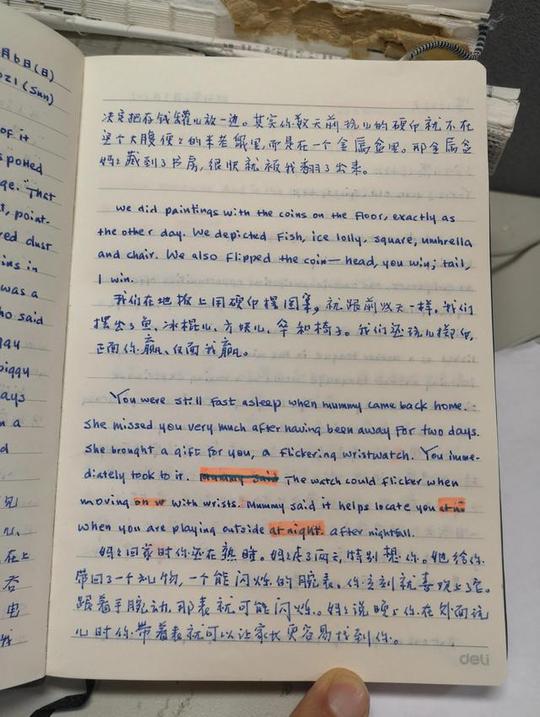 月6日(日)
021 (Sun)
of it
sponed
ge. That
t, point-
red dust
ins in
was a
ho said
ggy
piggy
ays
n a
d
见
心
在上
否
电
决定把存钱罐儿放一边。其实你数天前玩儿的硬币就不在
这个大腹便便的米老鼠里,而是在一个金属盒里。那金属盒
妈妈藏到了书房,很快就被我翻了出来。
We did paintings with the coins on the floor, exactly as
the other day. We depicted fish, ice lolly, square, umbrella
and chair. We also flipped the coin — head, you win; tail,
I win.
我们在地板上用硬币摆图案,就跟前几天一样。我们
摆出了鱼、冰棍儿、方块儿、伞和椅子。我们还玩儿掷币,
正面你赢、反面我赢。
You were still fast asleep when mummy came back home.
She missed you very much after having been away for two days.
She brought a gift for you, a flickering wristwatch. You imme-
diately took to it. Mummy said The watch could flicker when
moving on w with wrists. Mummy said it helps locate you at ni
when you are playing outside at night. after nightfall.
妈妈回家时你还在熟睡。妈妈走了两天,特别想你。她给你
带回了一个礼物,一个能闪烁的腕表。你立刻就喜欢上了它。
跟着手腕动,那表就可能闪烁。妈妈说晚上你在外面玩
儿时你带着表就可以让家长更容易找到你。
deli